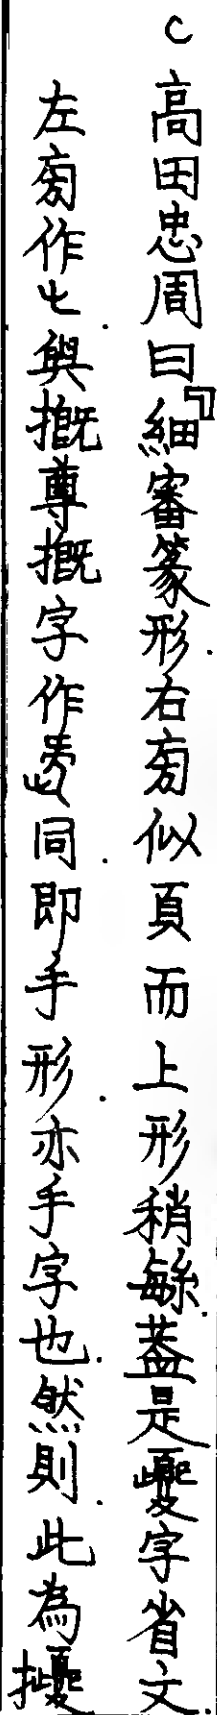 C 高田忠周曰『細審篆形.右旁似頁而上形稍緐.蓋是夒字省文
左旁作.與摡尊摡字作同.即手形.亦手字也.然則.此為擾